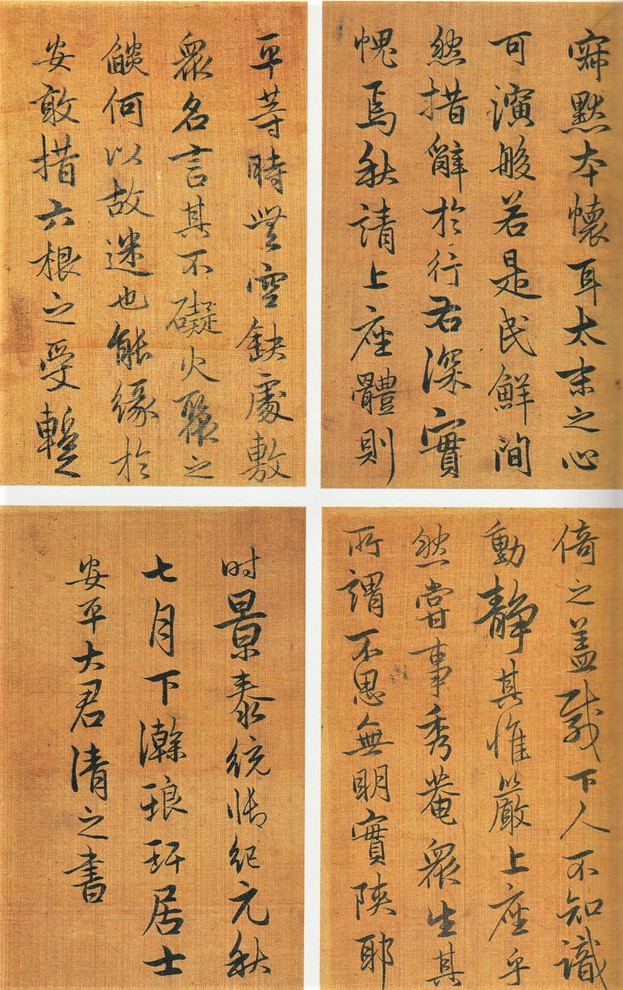 默本懷耳太末之心
可演般若是民鮮間
然措辭於行君深實
愧焉秋請上座體則
平等時無空缺處敷
眾名言其不礙火聚之
燄何以故迷也能緣於
安敢措六根之受
倚之蓋戲下人不知識
動靜其惟嚴上座乎
然當事秀菴眾生其
所謂不思無明實陝耶
时景泰統紀元秋
七月下瀚琅玕居士
安平大君清之書